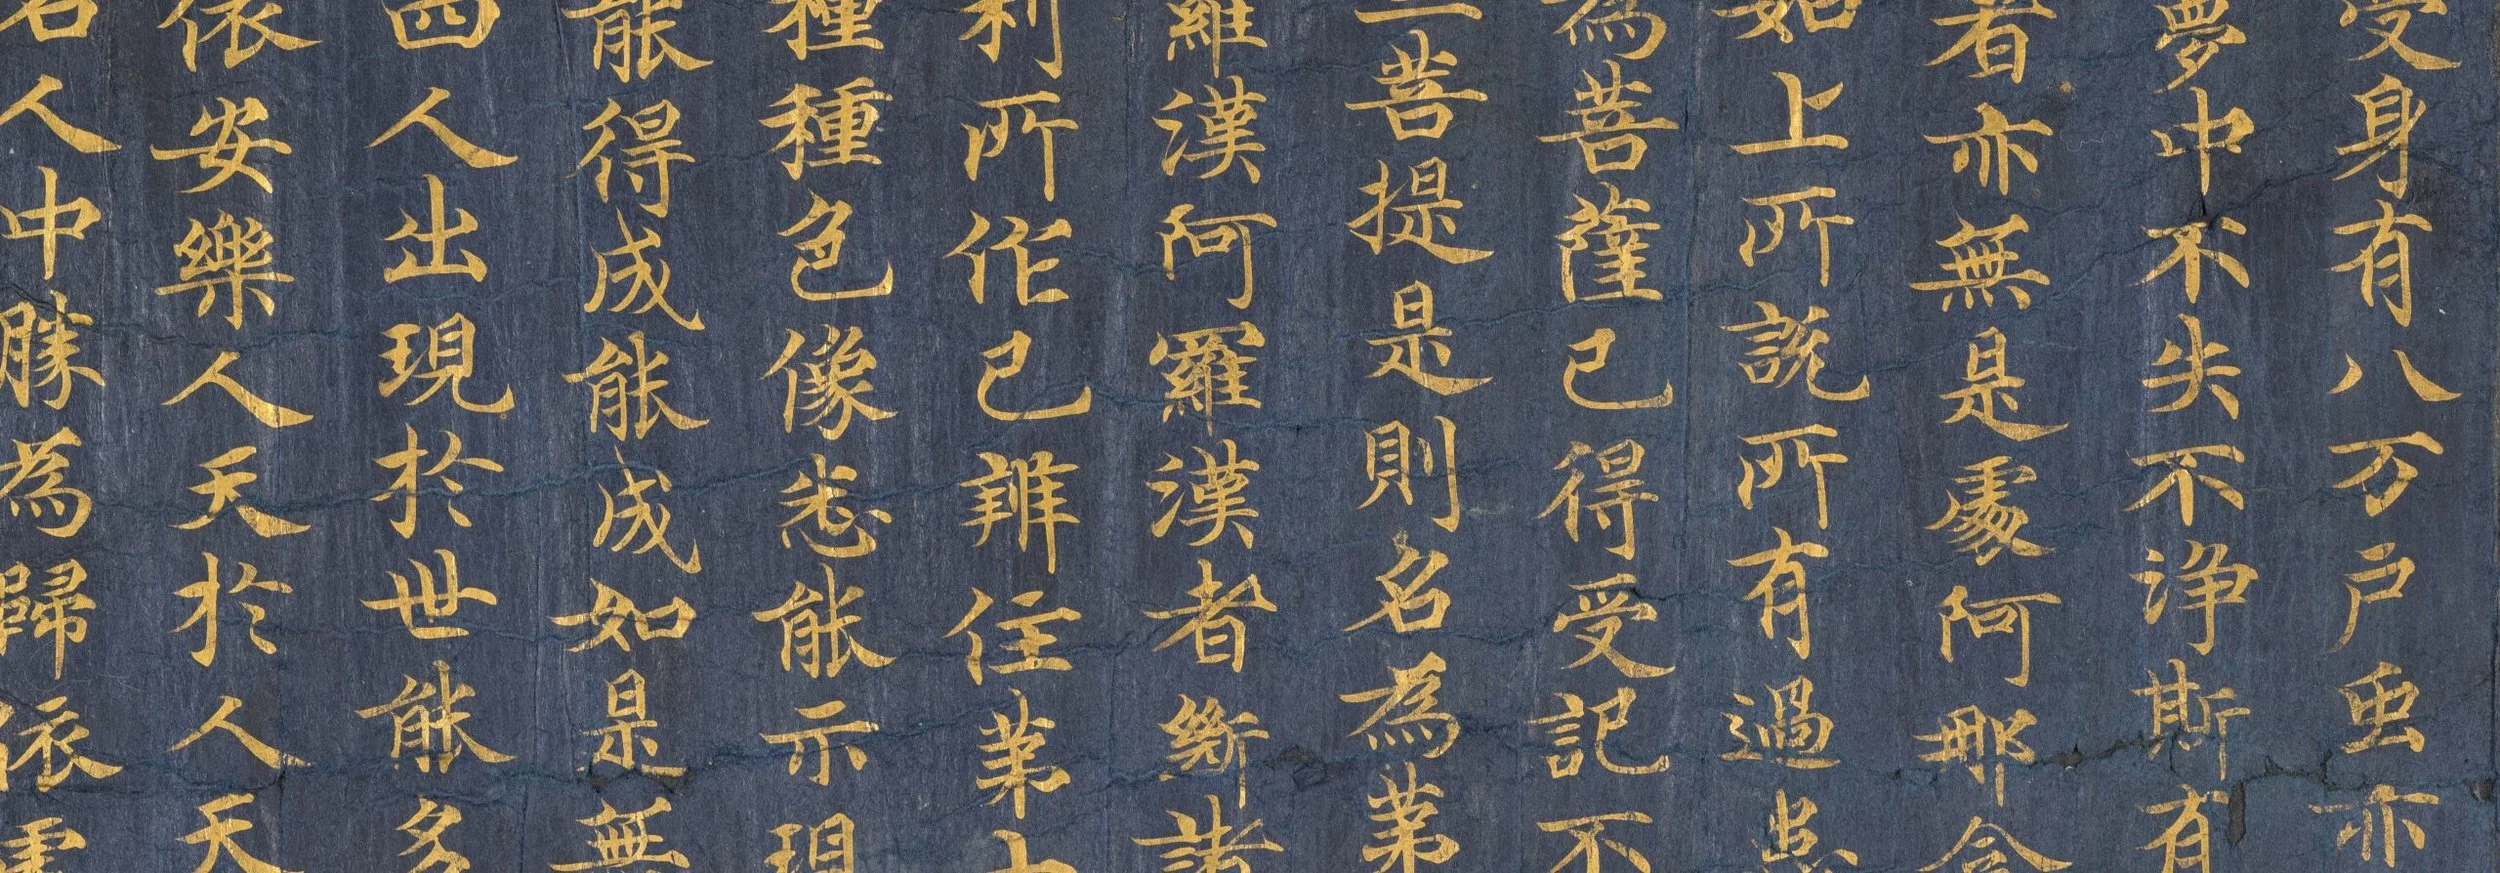 受身有八万戶虫亦
夢中不失不淨斯有
者亦無是處阿那含
如上所說所有過患
為菩薩已得受記不
三菩提是則名為第
羅漢阿羅漢者斷諸
利所作已辦住第十
種種色像悉能示現
能得成能成如是無
四人出現於世能多
依安樂人天於人天
名人中勝為歸依處